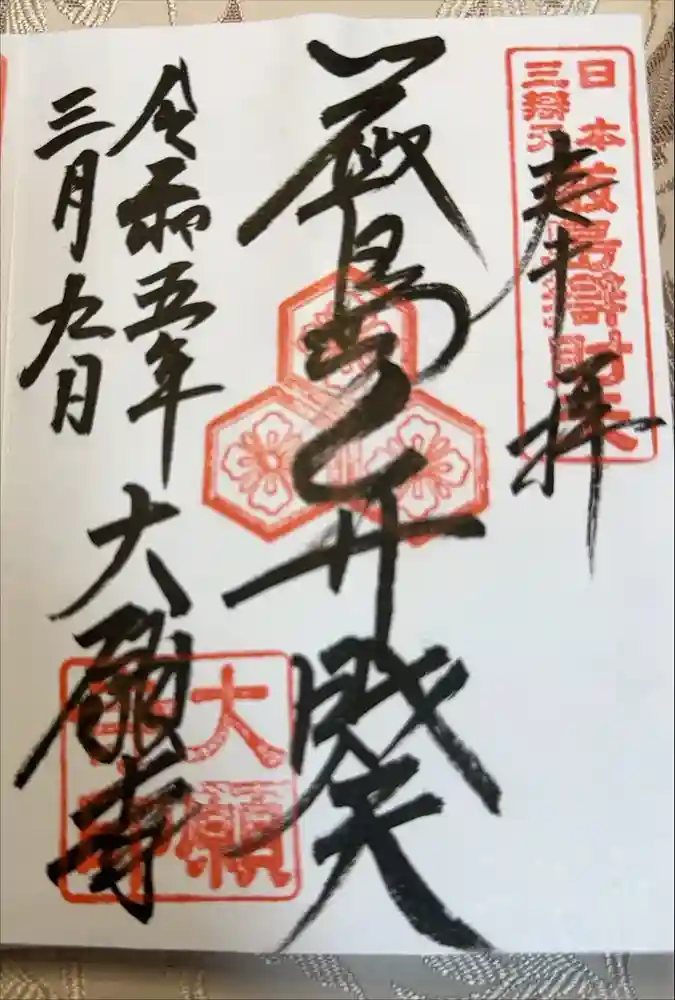 奉拝
日本
三辯天
厳島辯財天
厳島弁財天
令和五年
三月九日
大願寺
大願
寺印